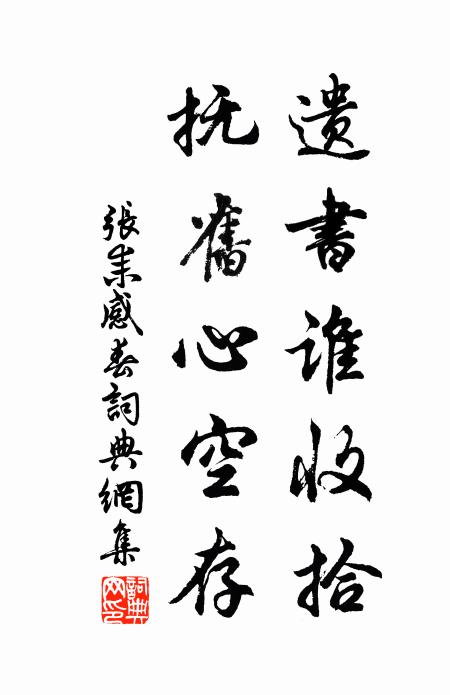 遺書誰收拾
抚舊心空存
張耒感春詞典網集
詞典网印